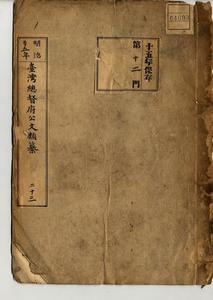 十五年保存
第十二門
明治
卅五年
臺灣總督府公文類纂
二十二